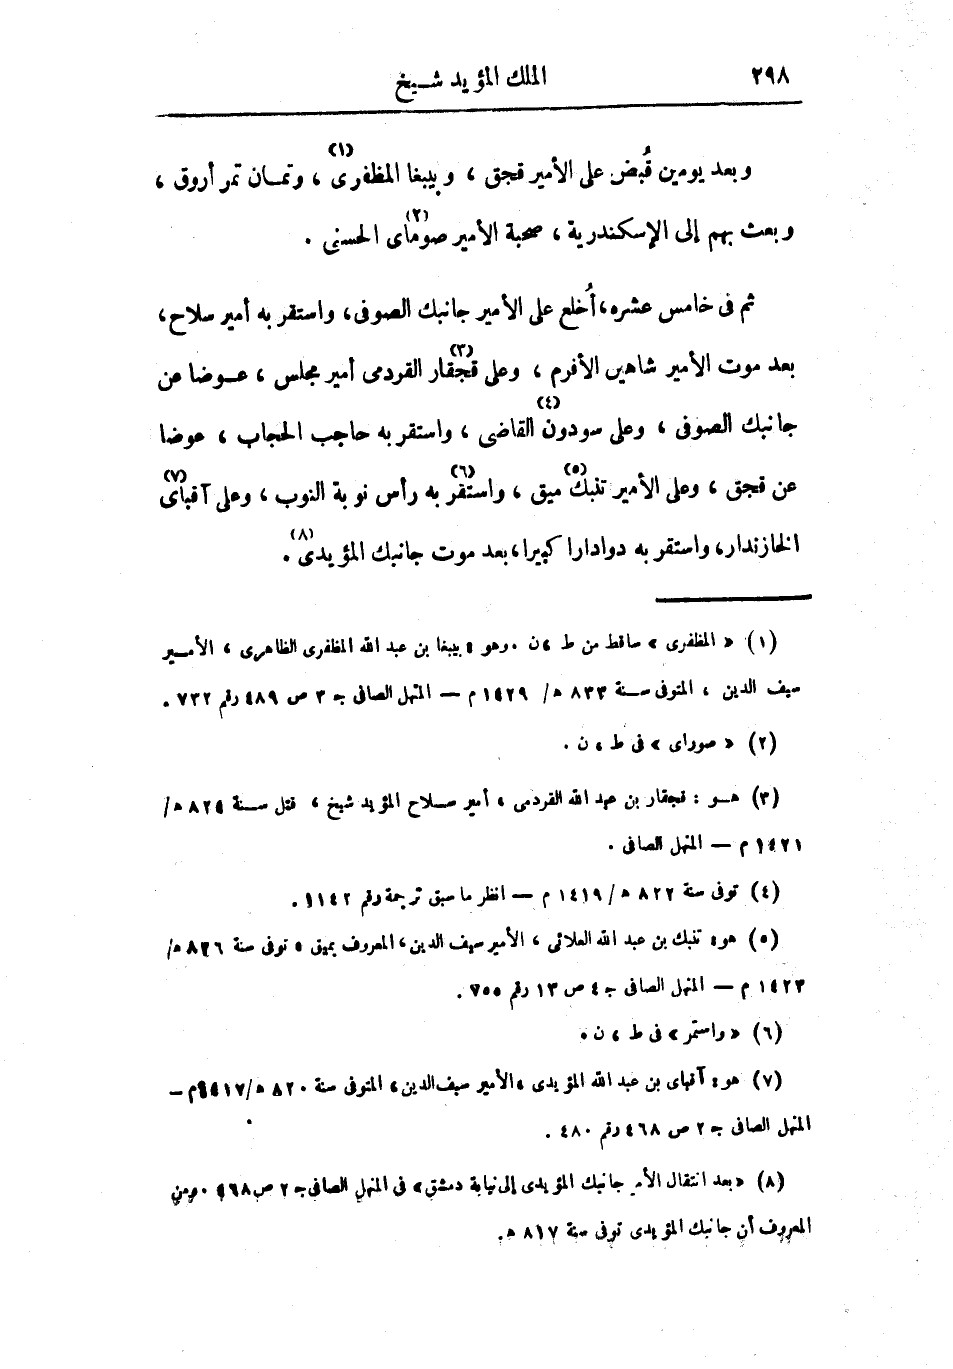 ٢٩٨ الملك المؤيد شيخ
وبعد يومين قُبض على الأمير قجق ، وبيبغا المظفرى(١) ، وتمان تمر أروق ،
وبعث بهم إلى الإسكندرية ، صحبة الأمير صوماى(٢) الحسنى .
ثم فى خامس عشره، أُخلع على الأمير جانبك الصوفى، واستقر به أمير سلاح،
بعد موت الأمير شاهين الأفرم ، وعلى قجقار(٣) القردمى أمير مجلس ، عوضا عن
جانبك الصوفى ، وعلى سودون القاضى(٤) ، واستقر به حاجب الحجاب ، عوضا
عن قجق ، وعلى الأمير تنبك(٥) ميق ، واستقر(٦) به رأس نوبة النوب ، وعلى آقباى(٧)
الخازندار، واستقر به دوادارا كبيرا، بعد موت جانبك المؤيدى(٨) .
(١) « المظفرى » ساقط من ط ، ن . وهو : بيبغا بن عبد الله المظفرى الظاهرى ، الأمير
سيف الدين ، المتوفى سنة ٨٣٣ ه/ ١٤٢٩ م — المنهل الصافى ج ٣ ص ٤٨٩ رقم ٧٣٢ .
(٢) « صوراى » فى ط ، ن .
(٣) هو : قجقار بن عبد الله القردمى ، أمير سلاح المؤيد شيخ ، قتل سنة ٨٢٤ ه/
١٤٢١ م — المنهل الصافى .
(٤) توفى سنة ٨٢٢ ه/ ١٤١٩ م — انظر ما سبق ترجمة رقم ١١٤٢ .
(٥) هو : تنبك بن عبد الله العلائى ، الأمير سيف الدين ، المعروف بميق ، توفى سنة ٨٢٦ ه/
١٤٢٣ م — المنهل الصافى ج ٤ ص ١٣ رقم ٧٥٥ .
(٦) « واستمر » فى ط ، ن .
(٧) هو : آقباى بن عبد الله المؤيدى ، الأمير سيف الدين ، المتوفى سنة ٨٢٠ ه/ ١٤١٧م —
المنهل الصافى ج ٢ ص ٤٦٨ رقم ٤٨٠ .
(٨) « بعد انتقال الأمر جانبك المؤيدى إلى نيابة دمشق » فى المنهل الصافى ج ٢ ص ٤٦٨ . ومن
المعروف أن جانبك المؤيدى توفى سنة ٨١٧ ه .